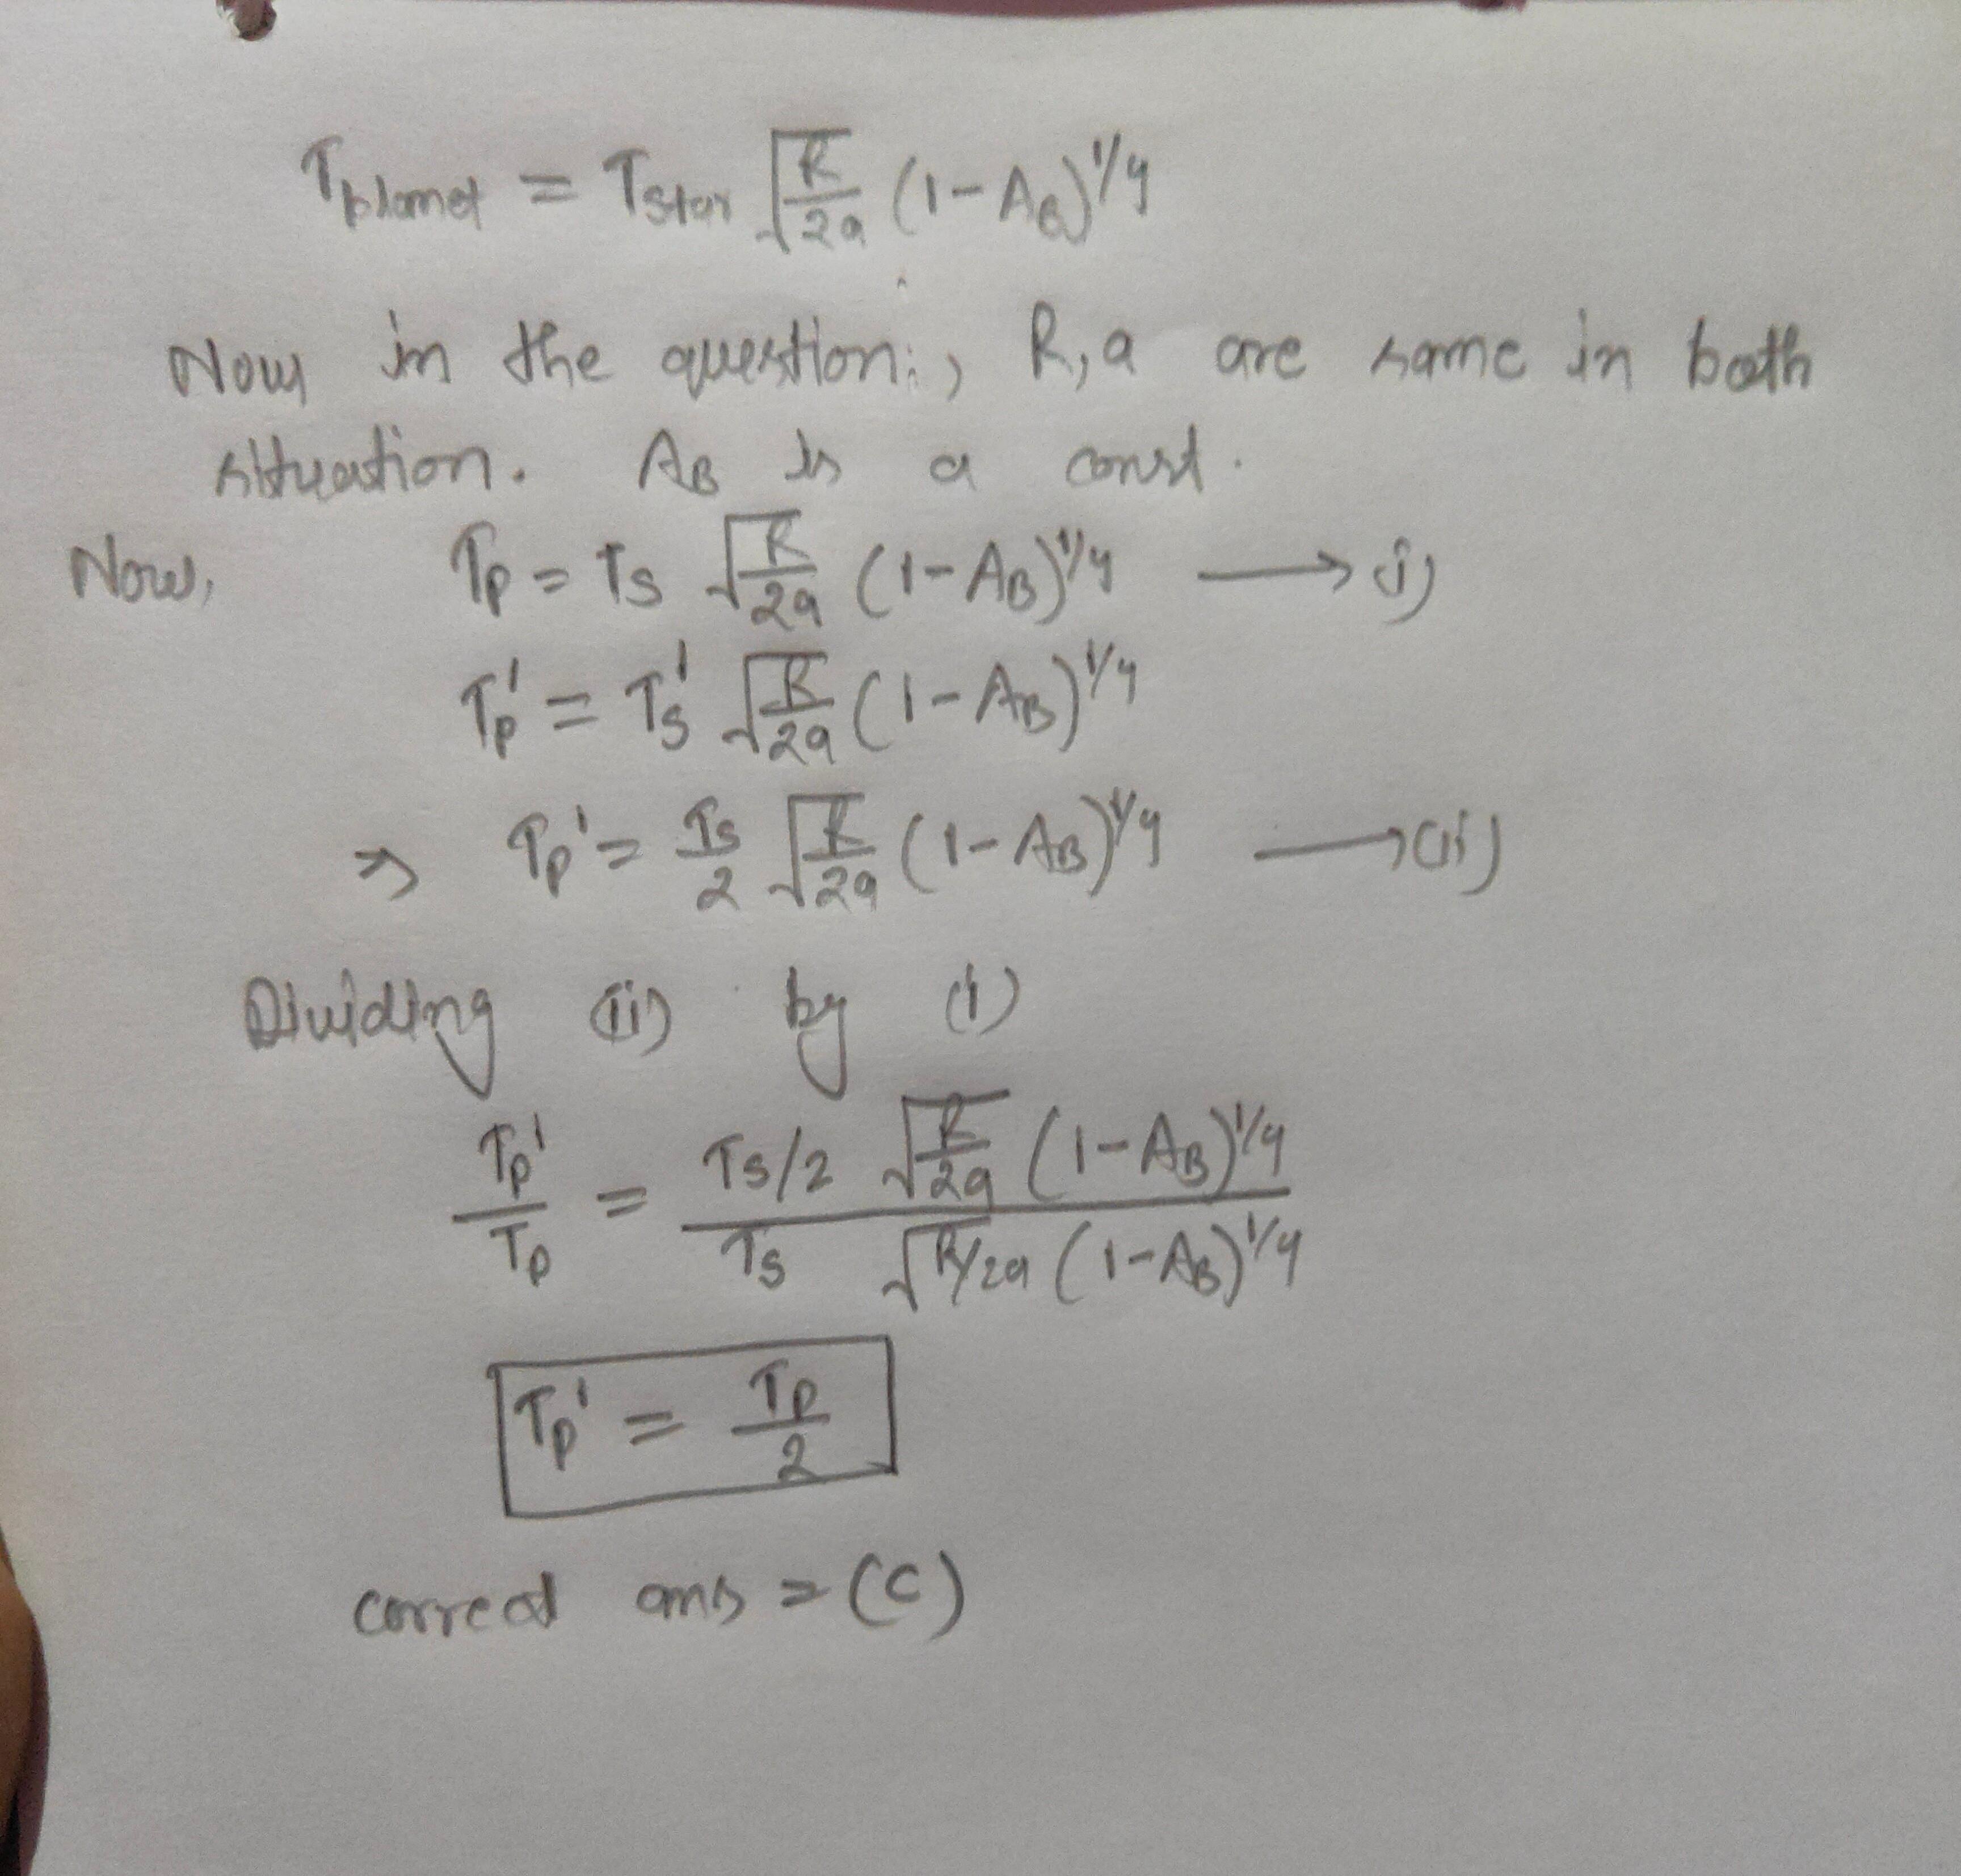 T_planet = T_star √(R/2a) (1-A_B)^1/4
Now in the question:, R, a are same in both
situation. A_B is a const.
Now, T_p = T_s √(R/2a) (1-A_B)^1/4 ⟶ i)
T_p' = T_s' √(R/2a) (1-A_B)^1/4
⇒ T_p' = T_s/2 √(R/2a) (1-A_B)^1/4 ⟶ (ii)
Dividing (ii) by (i)
T_p'/T_p = (T_s/2 √(R/2a) (1-A_B)^1/4)/(T_s √(R/2a) (1-A_B)^1/4)
T_p' = T_p/2
correct ans = (C)